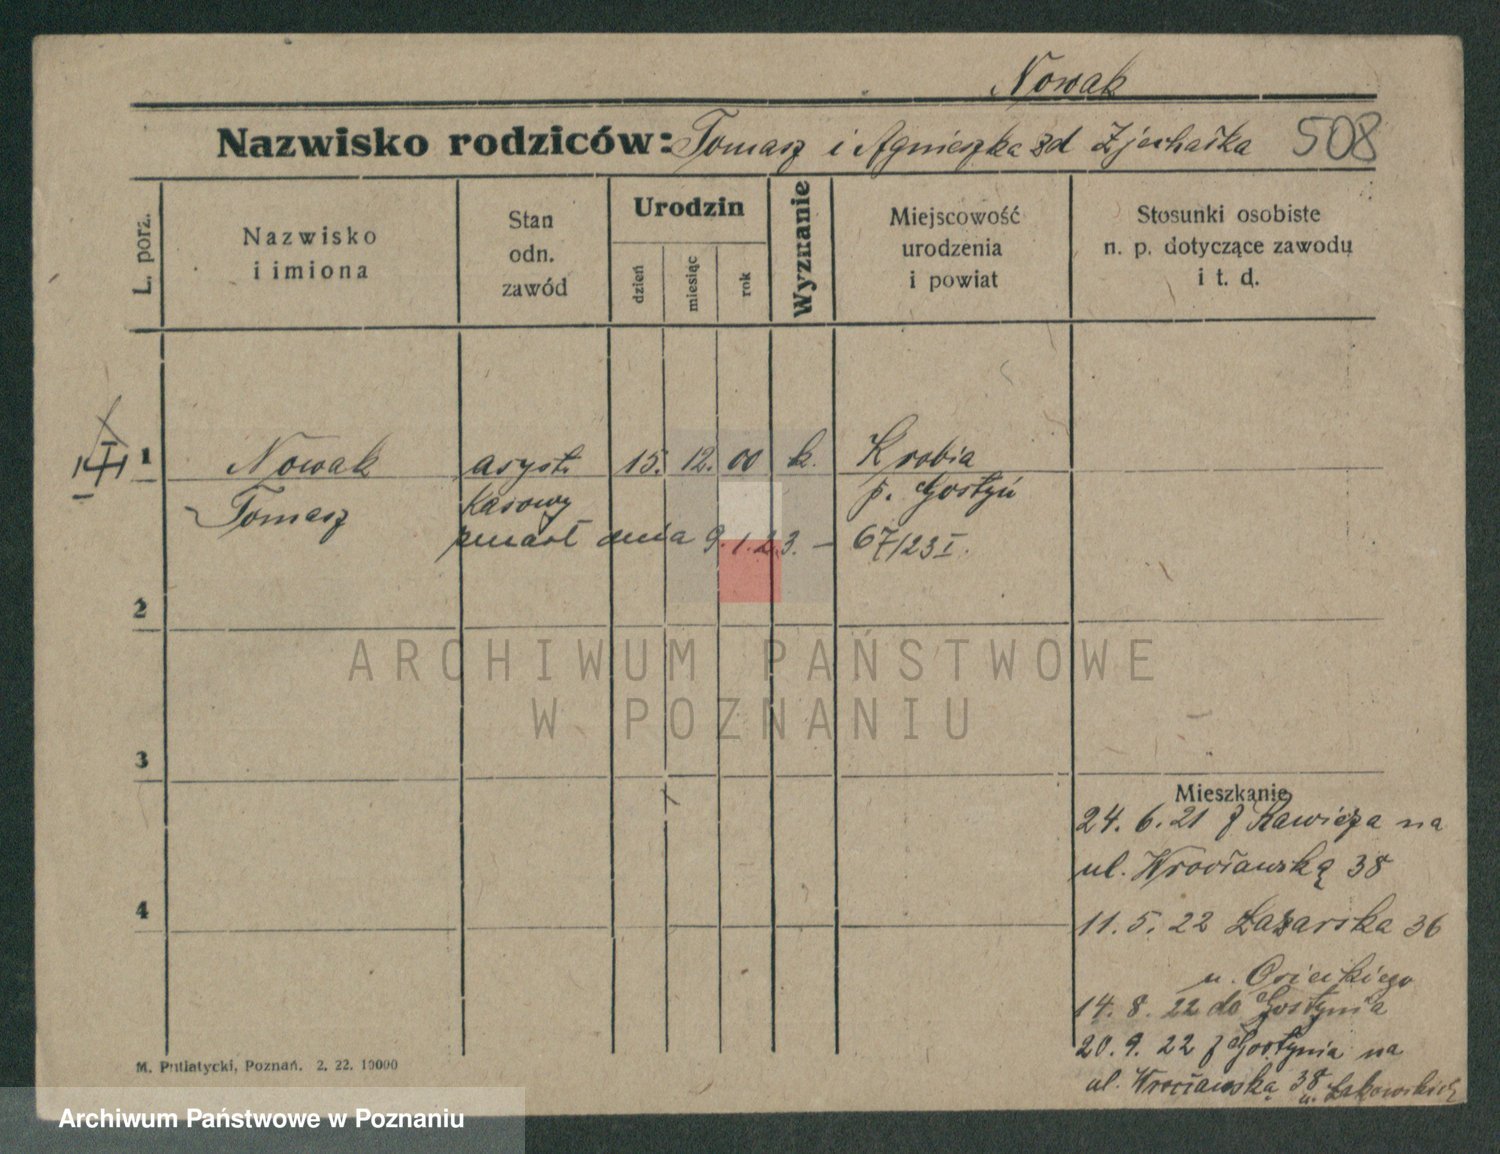 Nowak
Nazwisko rodziców: Tomasz i Agnieszka zd 508
L. porz.
Nazwisko
i imiona
Stan
odn.
zawód
Urodzin
dzień
miesiąc
rok
Wyznanie
Miejscowość
urodzenia
i powiat
Stosunki osobiste
n. p. dotyczące zawodu
i t. d.
1 Nowak asyst. 15. 12. 00 k. Krobia
Tomasz kasowy p. Gostyń
zmarł dnia 9.1.23. — 67/23 I.
2
ARCHIWUM PAŃSTWOWE
W POZNANIU
3
Mieszkanie
24. 6. 21 z Rawicza na
ul. Wrocławską 38
4
11. 5. 22 Łazarska 36
u. Osieckiego
14. 8. 22 do Gostynia
20. 9. 22 z Gostynia na
ul. Wrocławską 38
M. Putiatycki, Poznań. 2. 22. 10000
Archiwum Państwowe w Poznaniu